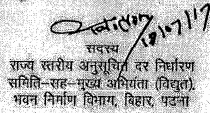 18/07/17
सदस्य
राज्य स्तरीय अनुसूचित दर निर्धारण
समिति-सह-मुख्य अभियंता (विद्युत),
भवन निर्माण विभाग, बिहार, पटना